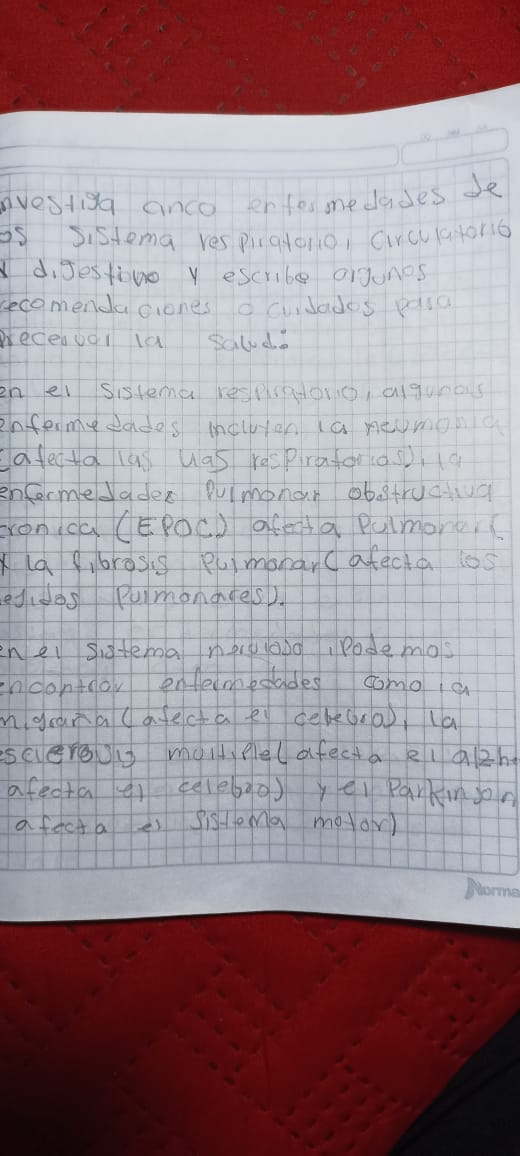 nvestiga cinco enfermedades de
os sistema respiratorio, circulatorio
y digestivo y escribe algunos
recomendaciones o cuidados para
precervar la salud:
en el sistema respiratorio, algunas
enfermedades incluyen la neumonia
(afecta las vias respiratorias), la
enfermedades pulmonar obstructiva
cronica (EPOC) afecta pulmonar(
y la fibrosis pulmonar (afecta los
ejidos pulmonares).
en el sistema nervioso, podemos
encontrar enfermedades como la
migraña (afecta el celebro), la
esclerosis multiple (afecta el alzh
afecta el celebro) y el Parkinson
afecta el sistema motor)
Norma